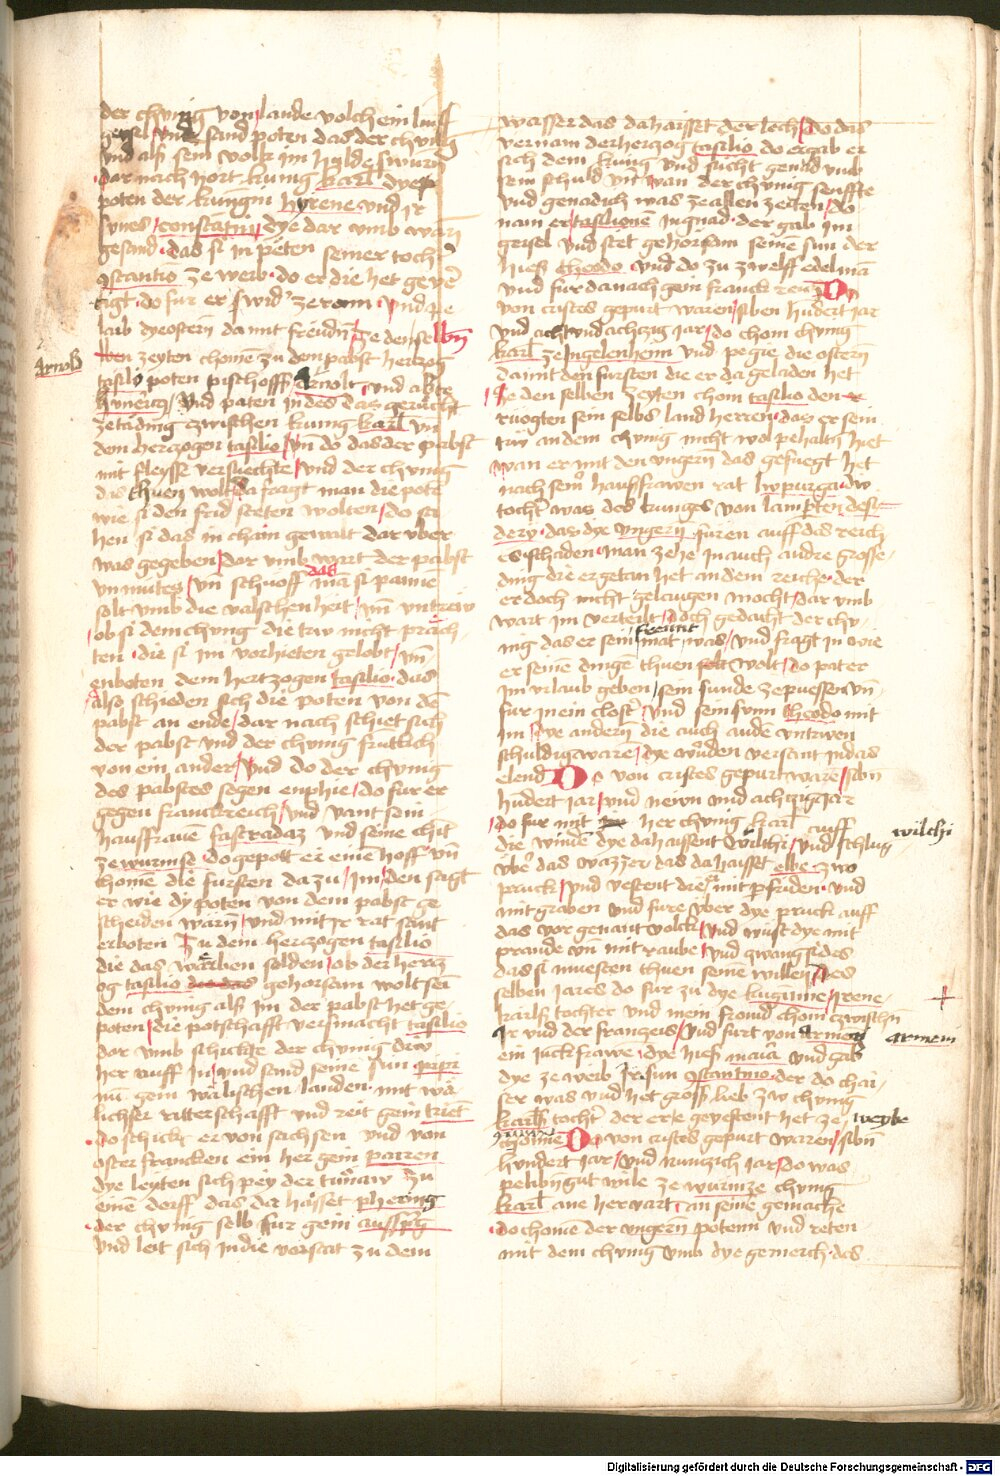 der chünig vom lande volch ein lauff
vnd sand poten das der chünig
vnd als sein volk im hulde swuern
dar nach hort kunig karl dye
poten der kungin hyrene vnd ir
sunes constantin dye dar vmb warn
gesand das si in peten seiner tochter
ze weib do er die het geue
tigt do fur er wider ze rom vnd pe
laib dye ostern da mit freuden ze den selbn
zeyten chomen zu dem pabst hertzog
tasilo poten pischoff Arnolt vnd abte
Arnolt
vnd paten in des das gericht
zetading zwischen kunig karl vnd
dem herzogen tasilio vnd do das der pabst
mit fleyss versuechte vnd der chunig
das thuen wolt da fragt man die poten
wie si den frid steten wolten do si
hen si das in chain gewalt dar vber
was gegeben dar vmb wart der pabst
vnmutes vnd schueff das man si pannen
solt vmb die valschenheit vnd vntrew
ob si dem chunig die trw nicht präch
ten die si im vorhieten gelobt vnd
enboten dem hertzogen tasilio das
also schieden sich die poten von dem
pabst an ende dar nach schiet sich
der pabst vnd der chunig fruntlich
von ein ander vnd do der chunig
des pabstes segen enphie do fur er
gegen franckreich vnd vant sein
hausfrauen fastradaz vnd seine chint
ze wurmse do gepott er einen hoff vnd
chomen die fursten da zu im den sagt
er wie dy poten von dem pabst ge
scheiden warn vnd mit ir rat sant
er boten zu dem herczogen tasilio
die das werben solden ob der hertz
og tasilio gehorsam wolt sein
dem chunig als im der pabst het ge
poten die potschafft versmacht tasilio
dar vmb schickte der chunig drw
her auff in vnd sand seine sun pipi
num gein wälischen landen mit wä
lichser ritterschafft vnd reit gein trient
do schickt er von sachsen vnd von
oster francken ein her gem parren
dye leyten sich pey der tunaw zu
einem dorff das da haisset phering
der chunig selb fur gein auspurg
vnd leit sich in die vorstat zu dem
wasser das da haisset der lech do das
vernam der herzog tasilio do ergab er
sich dem kunig vnd sucht genad vmb
sein schuld wan der chunig senffte
vnd genadich was ze allen zeiten do
nam er tasilionem in gnad der gab im
geisel vnd stet gehorsam seine sun der
hiess theodo vnd do zu zwelff edelman
vnd fur danach gein franckreich Do
von cristes gepurt waren siben hundert jar
vnd acht vnd achtzig jar do chom chunig
karl ze Ingelenheim vnd pegie die ostern
da mit den fursten die er da geladen het
Ze den selben zeyten chom tasilio den
ruogten sein selbs land herren das er sein
trw an dem chunig nicht wol pehalten het
wan er mit den vngern das gefuegt het
nach seiner hausfrawen rat lwpurga dw
tochter was des kuniges von lamparten desi
dery das dye vngern furen auff das reich
es schaden man zehe in auch andre grosse
ding die er getan het an dem reiche der
er doch nicht gelaugen mocht dar vmb
wart im verteilt doch gedacht der chu
nig das er sein freunt was vnd fragt in wie
er seinem dingen thuen wolt do pat er
im vrlaub geben sein sunde ze puessen vnd
fur in ein closter vnd sein sunn theodo mit
im dye andern die auch an den vntrwen
schuldig waren dye wurden versant in das
elend Do von cristes gepurt waren siben
hundert jar vnd newn vnd achtzig jar
do fur mit her chunig karl auff
die winden dye da haissent wilthi vnd schlug
wilchi
vber das wazzer das da haisset elbe zwo
pruck vnd vestent die mit perfriden vnd
mit graben vnd fure vber dye pruck auff
das vor genant volck vnd wust dye mit
prande vnd mit raube vnd gwang si des
das si muesten thuen seinen willen Des
selben jares do fur zu dye kunginne Irene
karls tochter vnd mein frowd chom czwischn
ir vnd der franczeis vnd furt von armeni
armeni
ein juckfrawen dye hies maria vnd gab
dye ze weib Ir sun constantino der do chai
ser was vnd het gross lieb zw chunig
karls tochter der er e geuestent het ze weybe
Do von cristes gepurt warren siben
hundert jar vnd nunzich jar do was
pelibm gut wile ze wurmze chunig
karl ane hervart an seine gemachen
do chomen der vngern potenn vnd reten
mit dem chunig vmb dye gemerch das
Digitalisierung gefördert durch die Deutsche Forschungsgemeinschaft - DFG